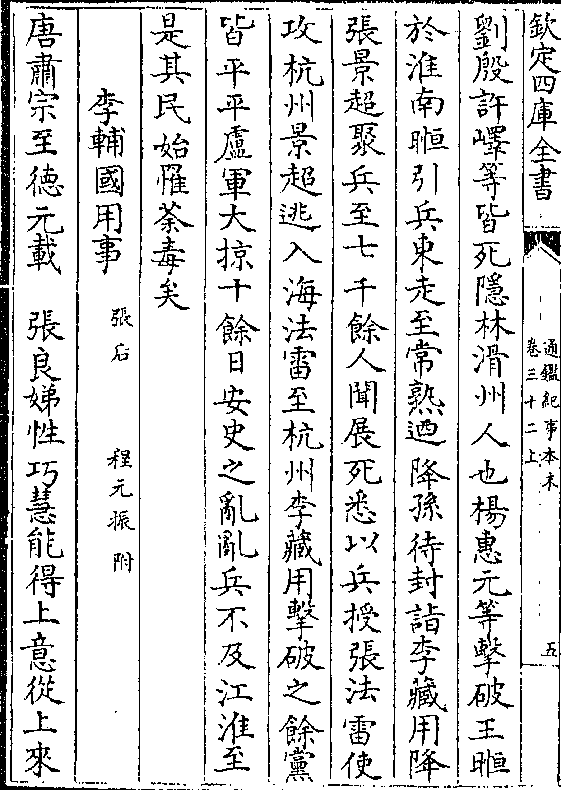 欽定四庫全書
通鑑紀事本末
卷三十二上
五
劉殷許嶧等皆死隱林滑州人也楊惠元等擊破王暅
於淮南暅引兵東走至常熟迺降孫待封詣李藏用降
張景超聚兵至七千餘人聞展死悉以兵授張法雷使
攻杭州景超逃入海法雷至杭州李藏用擊破之餘黨
皆平平盧軍大掠十餘日安史之亂亂兵不及江淮至
是其民始罹荼毒矣
李輔國用事 張后 程元振附
唐肅宗至德元載 張良娣性巧慧能得上意從上來